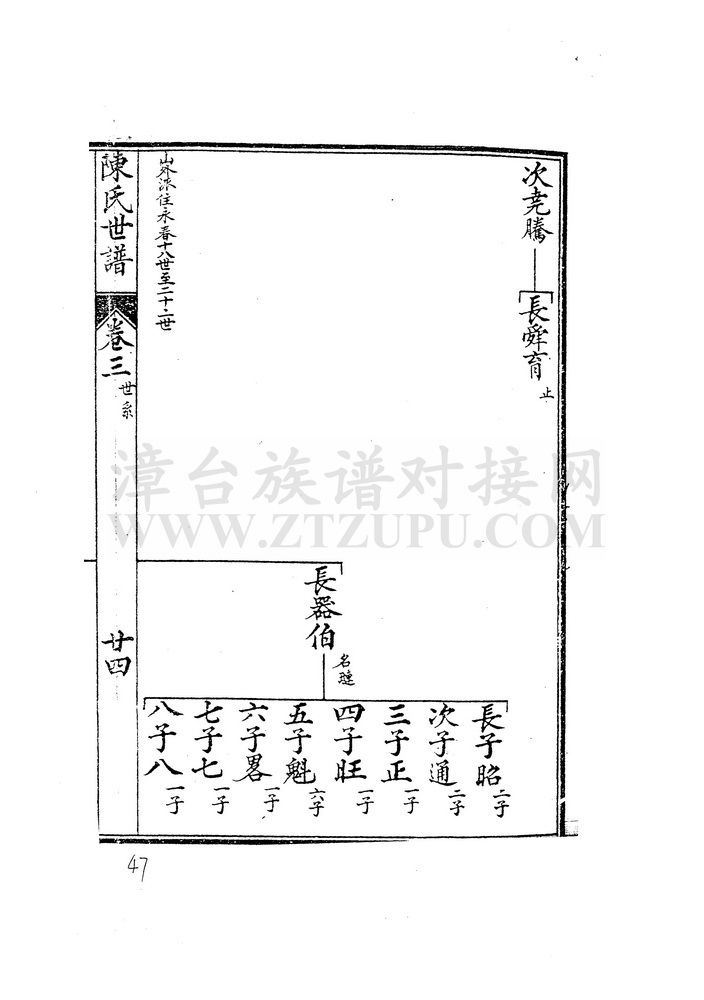 次堯騰
長舜育
止
長器伯
名璉
長子昭
二子
次子通
二子
三子正
一子
四子旺
一子
五子魁
六子
六子畧
一子
七子七
一子
八子八
一子
山外派往永春十八世至二十二世
陳氏世譜
卷三
世系
廿四
47
漳台族谱对接网
WWW.ZTZUPU.COM